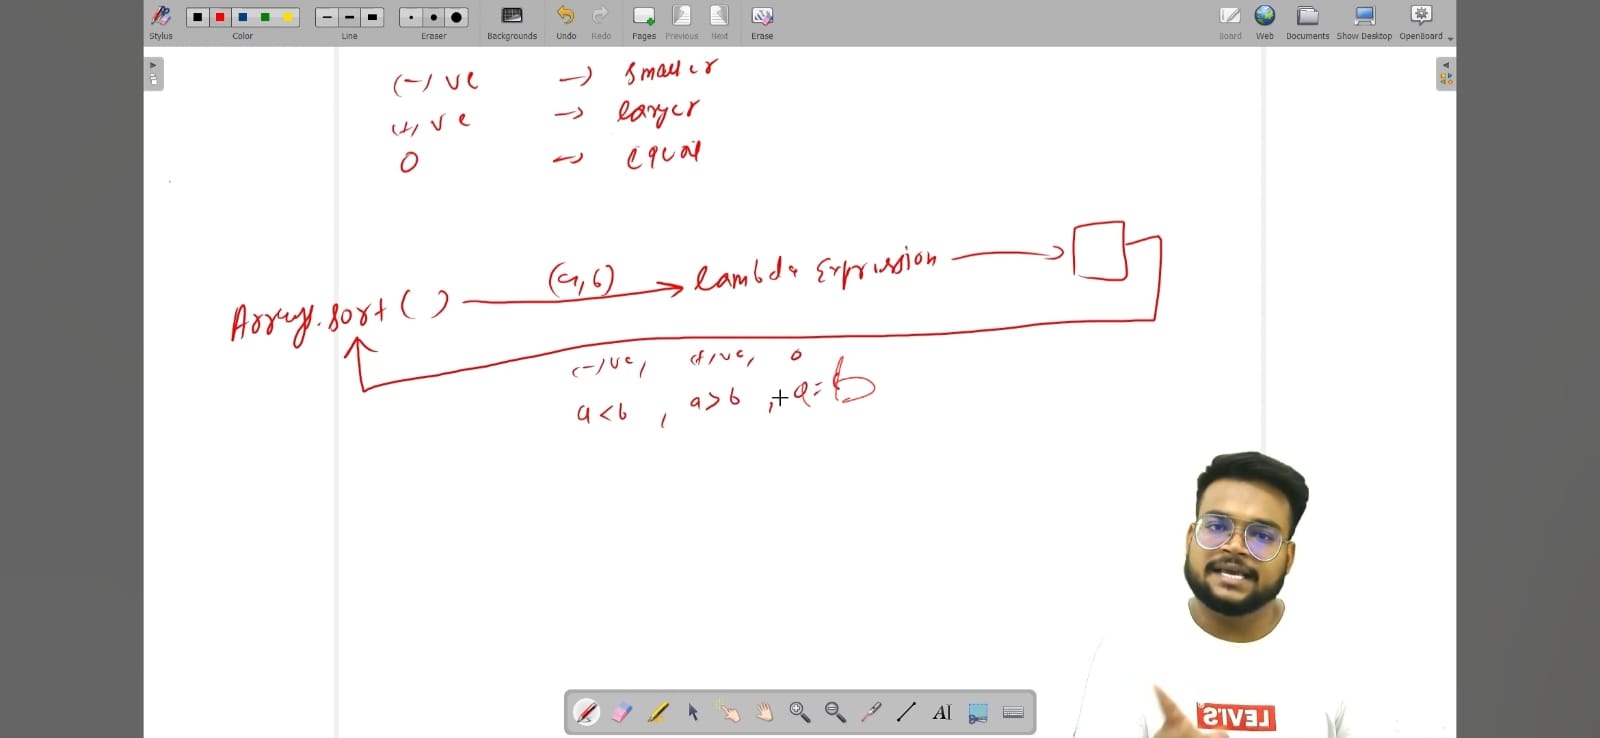 Stylus Color Line Eraser Backgrounds Undo Redo Pages Previous Next Erase Board Web Documents Show Desktop OpenBoard
(-)ve → smaller
(+)ve → larger
0 → equal
Arrays.sort() (a,b) → lambda Expression
(-)ve, (+)ve, 0
a<b , a>b , a=b
AI
LEVI'S